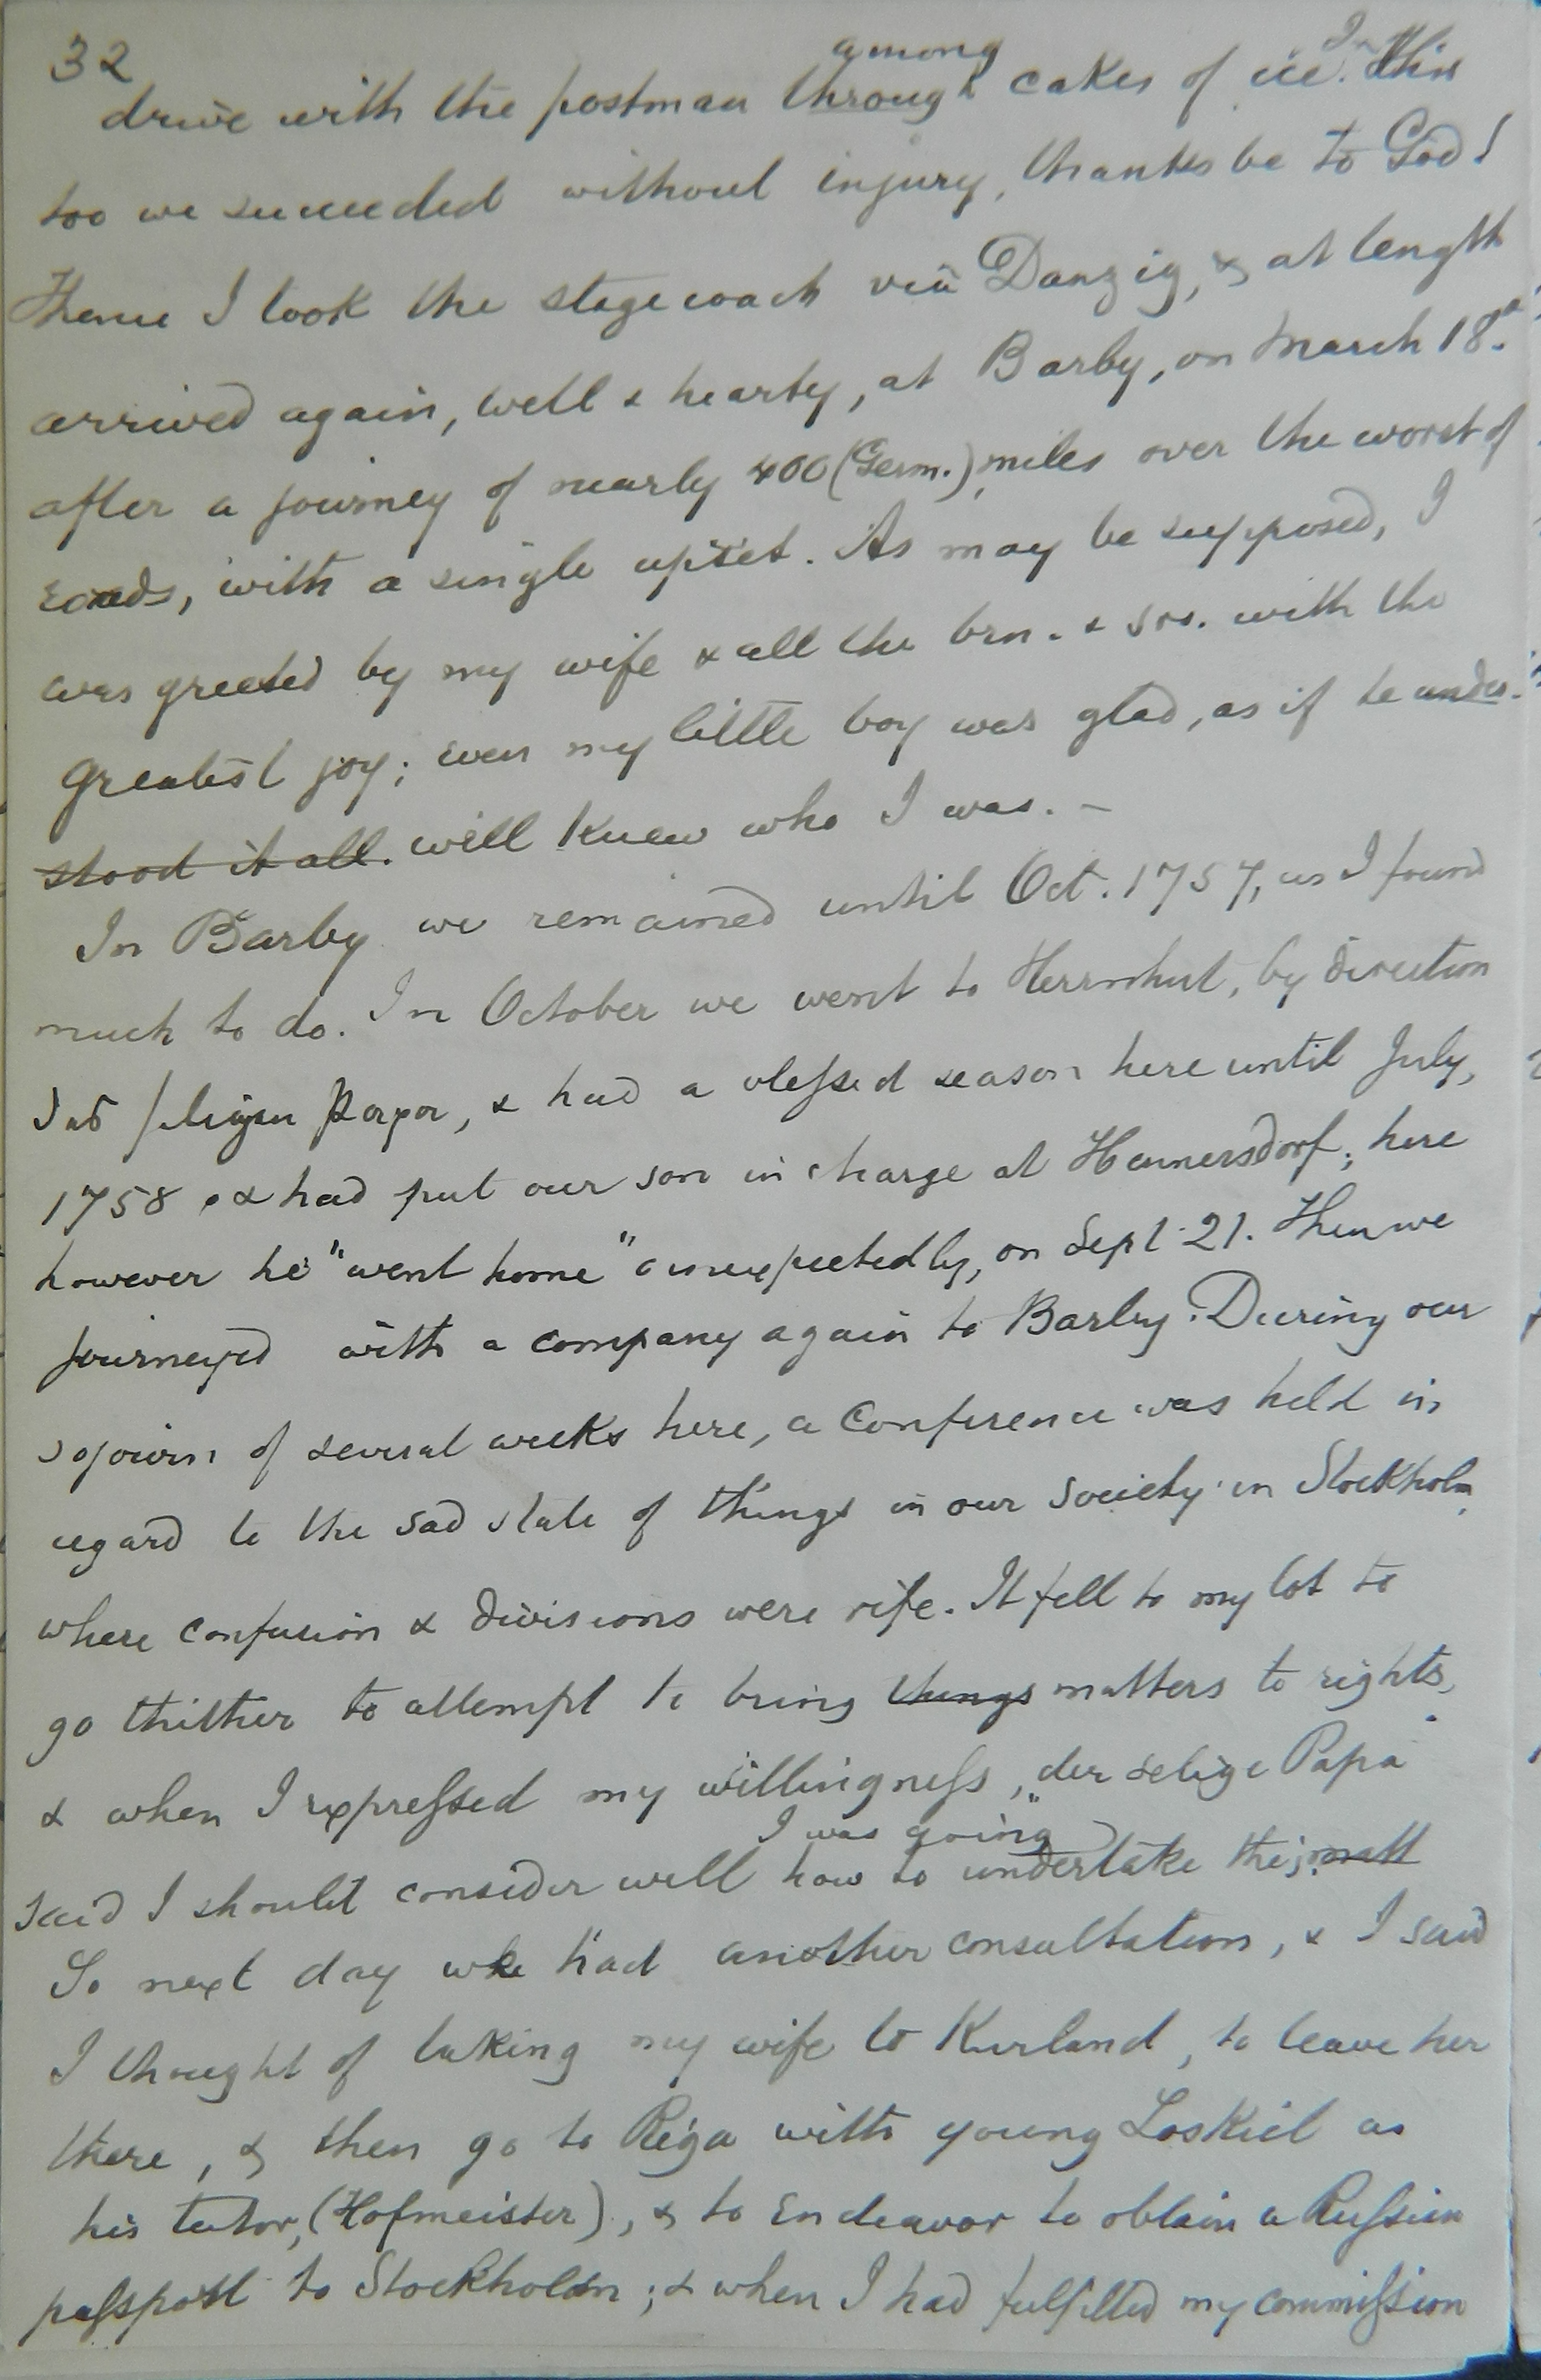 32
among
drive with the postman through cakes of ice. In this
too we succeeded without injury, thanks be to God!
Thence I took the stagecoach via Danzig, & at length
arrived again, well & hearty, at Barby, on March 18.
after a journey of nearly 400 (Germ.) miles over the worst of
roads, with a single upset. As may be supposed, I
was greeted by my wife & all the brn. & srs. with the
greatest joy; even my little boy was glad, as if he under-
stood it all. well knew who I was. –
In Barby we remained until Oct. 1757, as I found
much to do. In October we went to Herrnhut, by direction
& had a blessed season here until July,
1758 & had put our son in charge at Hennersdorf; here
however he "went home" unexpectedly, on Sept 21. Then we
journeyed with a company again to Barby. During our
sojourn of several weeks here, a Conference was held in
regard to the sad state of things in our Society in Stockholm,
where confusion & divisions were rife. It fell to my lot to
go thither to attempt to bring things matters to rights,
& when I expressed my willingness, "der selige Papa"
I was going
said I should consider well how to undertake this. matt
So next day we had another consultation, & I said
I thought of taking my wife to Kurland, to leave her
there, & then go to Riga with young Loskiel as
his tutor, (Hofmeister), & to endeavor to obtain a Russian
passport to Stockholm; & when I had fulfilled my commission